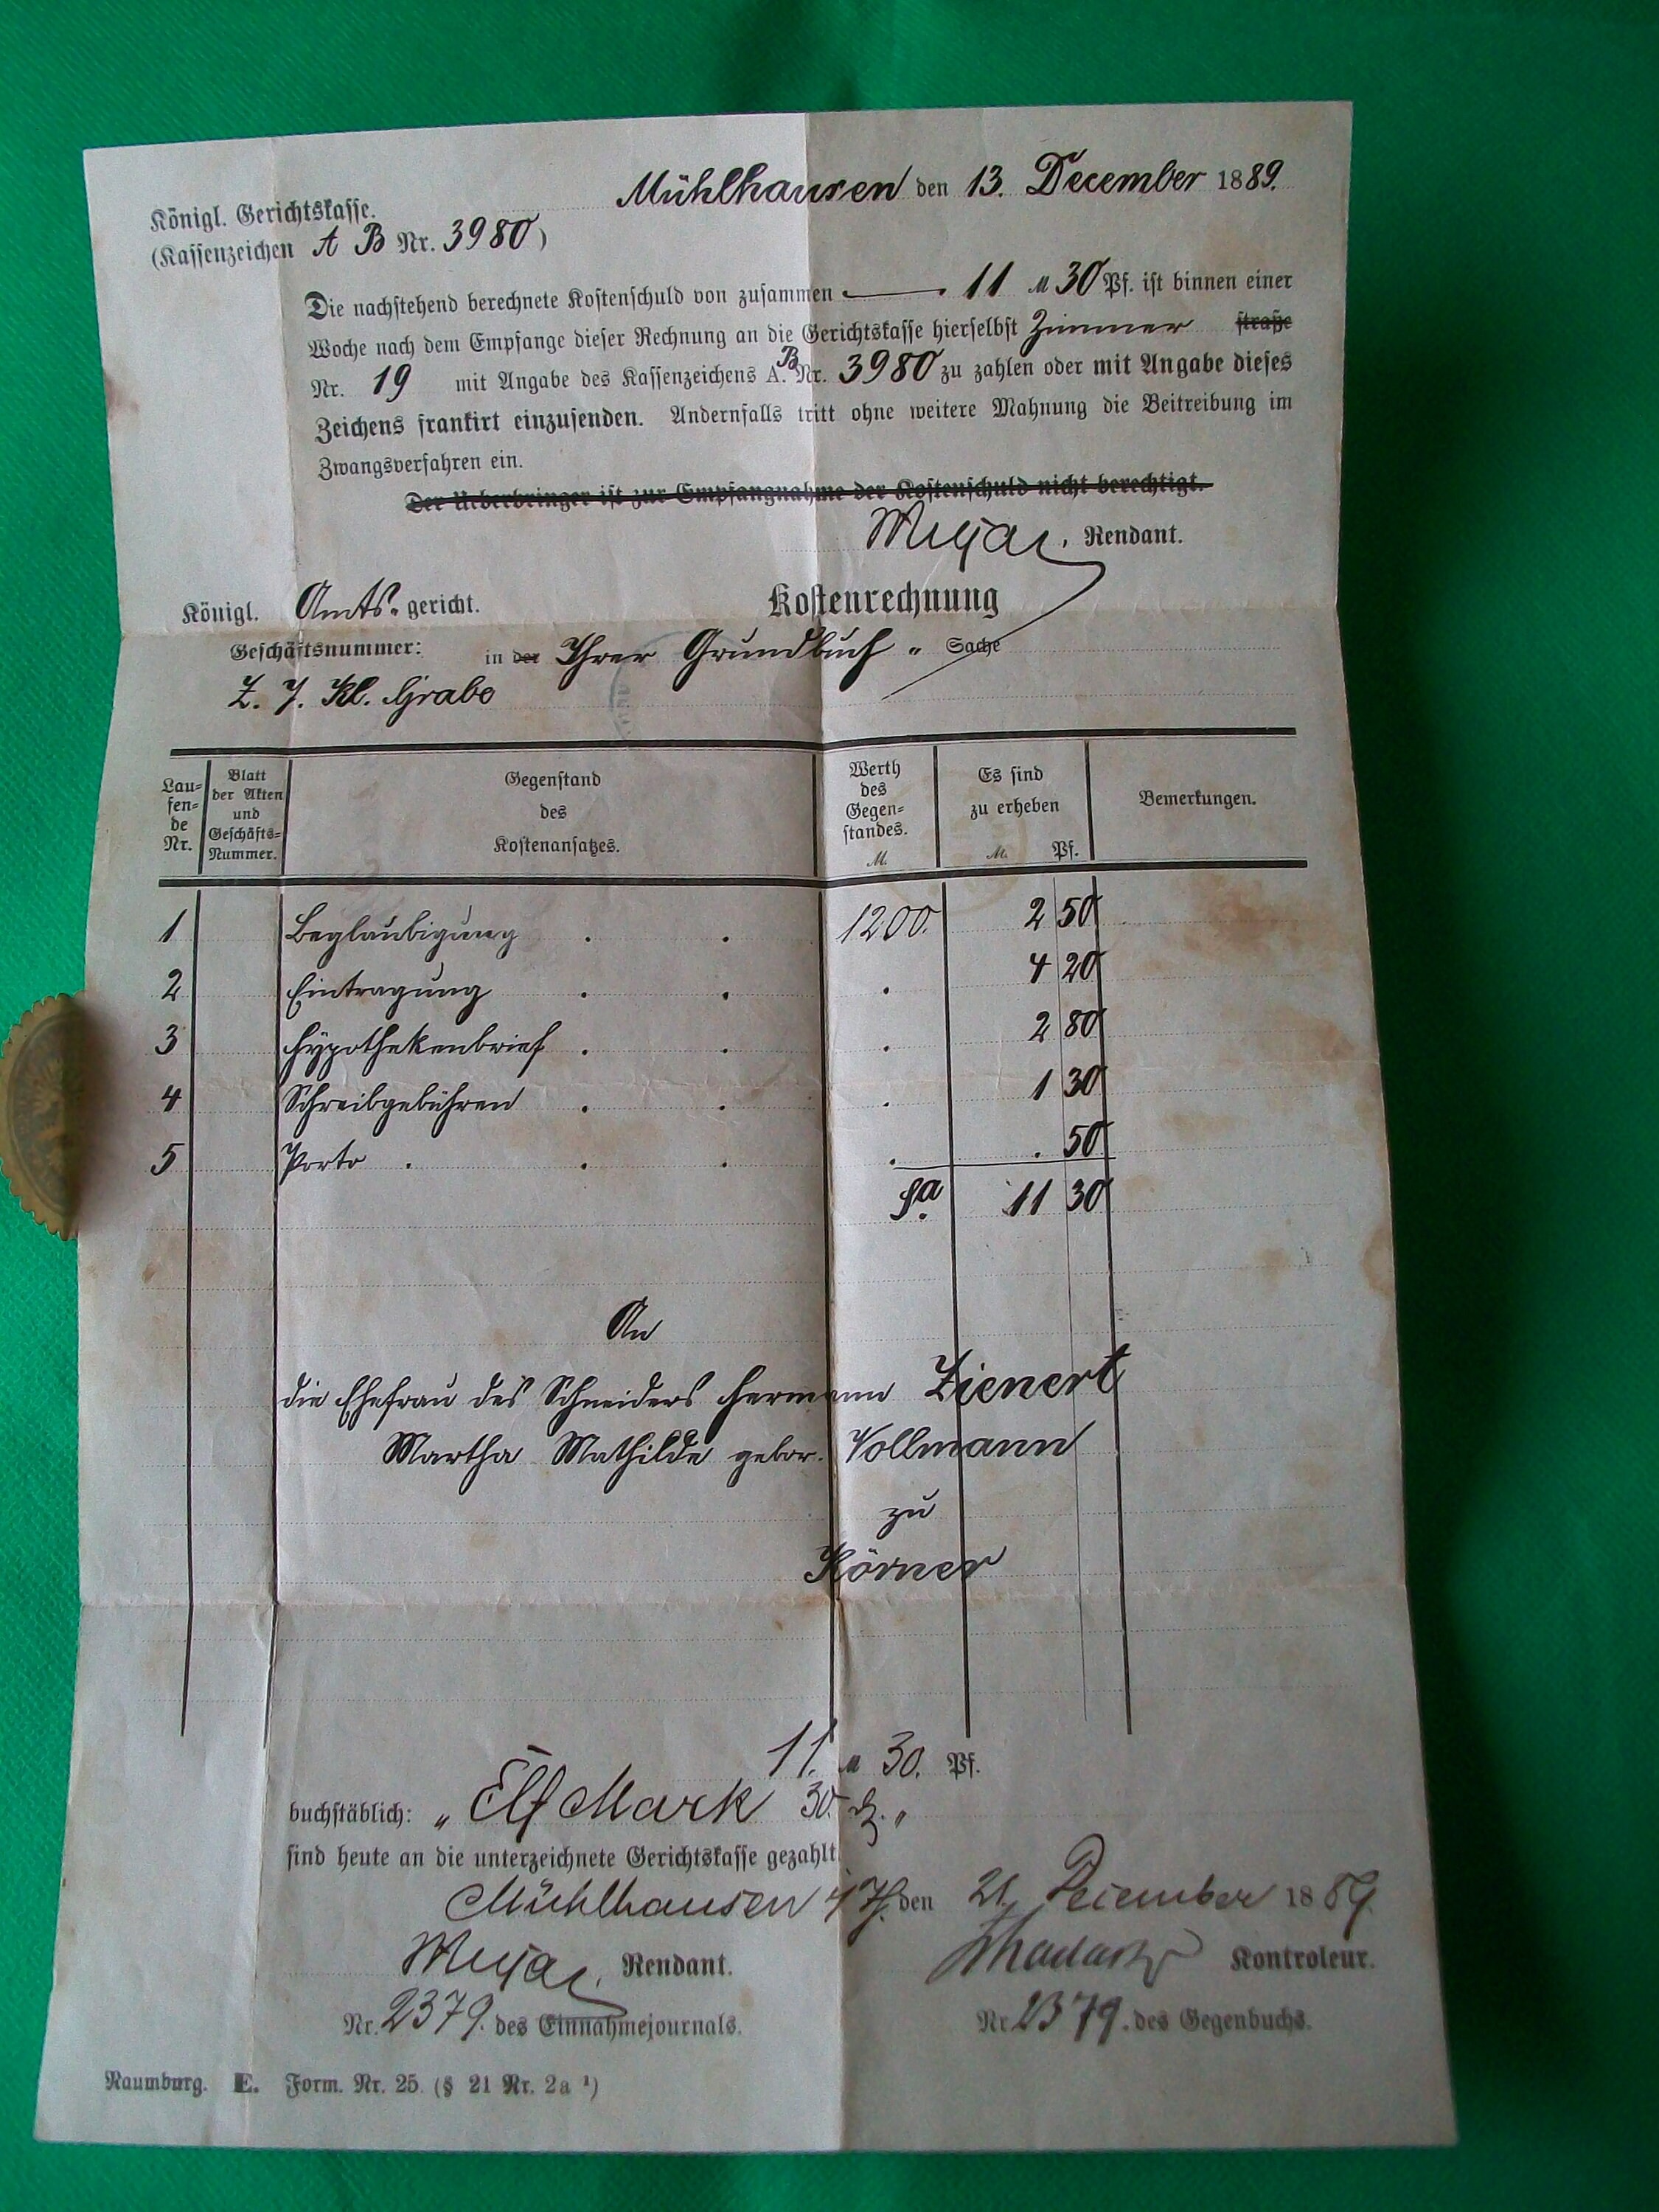 Mühlhausen den 13. December 1889.
Königl. Gerichtskasse.
(Kassenzeichen A B Nr. 3980)
Die nachstehend berechnete Kostenschuld von zusammen 11 M 30 Pf. ist binnen einer
Woche nach dem Empfange dieser Rechnung an die Gerichtskasse hierselbst Zimmer straße
Nr. 19 mit Angabe des Kassenzeichens A. B Nr. 3980 zu zahlen oder mit Angabe dieses
Zeichens frankirt einzusenden. Andernfalls tritt ohne weitere Mahnung die Beitreibung im
Zwangsverfahren ein.
Der Ueberbringer ist zur Empfangnahme der Kostenschuld nicht berechtigt.
Rendant.
Königl. Amts-gericht.
Kostenrechnung
Geschäftsnummer:
in der Ihrer Grundbuch - Sache
Z. 7. Kl. Grabe
Lau-
fen-
de
Nr.
Blatt
der Akten
und
Geschäfts-
Nummer.
Gegenstand
des
Kostenansatzes.
Werth
des
Gegen-
standes.
M.
Es sind
zu erheben
M. Pf.
Bemerkungen.
1 Beglaubigung . . 1200. 2 50
2 Eintragung . . . 4 20
3 Hypothekenbrief . . . 2 80
4 Schreibgebühren . . . 1 30
5 Porto . . . . . 50
Sa. 11 30
An
die Ehefrau des Schneiders Hermann Zienert
Martha Mathilde gebor. Vollmann
zu
Körner
11. M 30. Pf.
buchstäblich: „Elf Mark 30 d. "
sind heute an die unterzeichnete Gerichtskasse gezahlt
Mühlhausen i/Th. den 21. Dezember 1889.
Rendant.
Kontroleur.
Nr. 2379. des Einnahmejournals.
Nr. 2379. des Gegenbuchs.
Naumburg. E. Form. Nr. 25. (§ 21 Nr. 2a ¹)